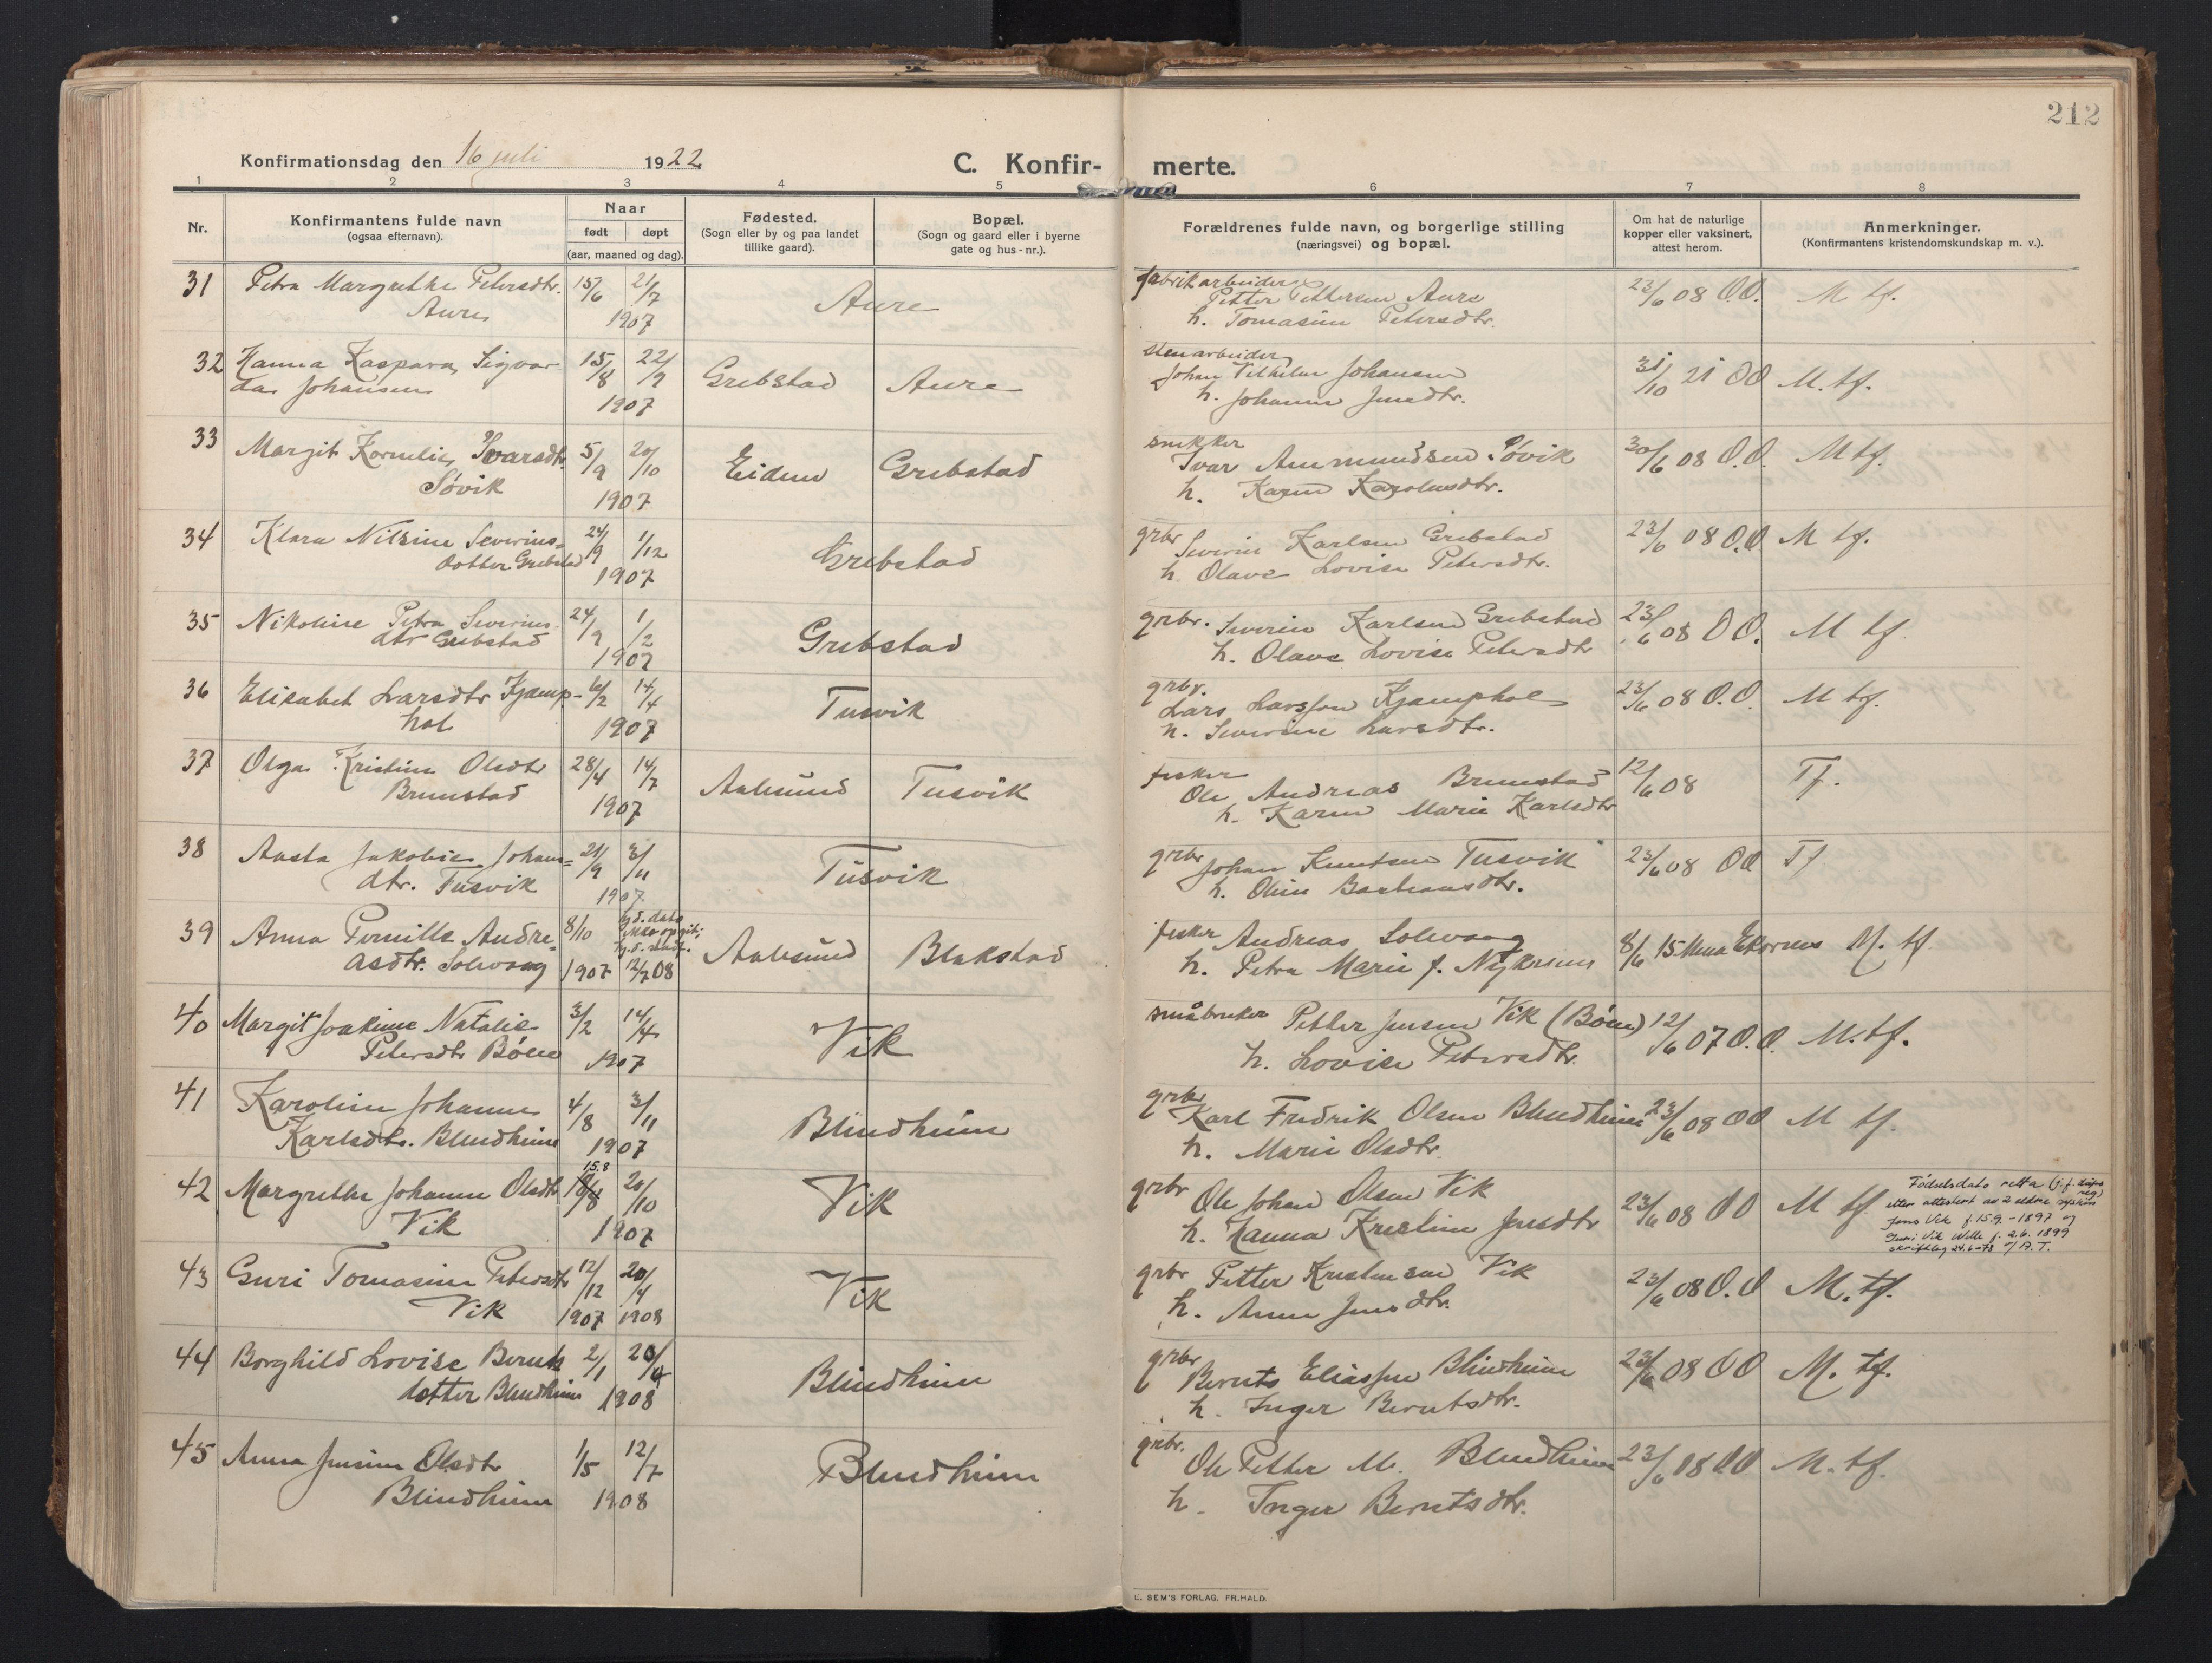 212
Konfirmationsdag den 16 juli 1922
C. Konfir- merte.
1 2 3 4 5 6 7 8
Nr.
Konfirmantens fulde navn
(ogsaa efternavn).
Naar
født døpt
(aar, maaned og dag).
Fødested.
(Sogn eller by og paa landet
tillike gaard).
Bopæl.
(Sogn og gaard eller i byerne
gate og hus-nr.).
Forældrenes fulde navn, og borgerlige stilling
(næringsvei) og bopæl.
Om hat de naturlige
kopper eller vaksinert,
attest herom.
Anmerkninger.
(Konfirmantens kristendomskundskap m. v.).
31 Petra Margrethe Petersdtr. 15/6 21/7 Aure fabrikarbeider 23/6 08 O.O. M tf.
Aure 1907 Petter Pettersen Aure
h. Tomasine Petersdtr.
32 Hanna Kaspara Sigvar- 15/8 22/9 Grebstad Aure stenarbeider 31/10 21 OO M. tf.
da Johansen 1907 Johan Vilhelm Johansen
h. Johanne Jensdtr.
33 Margit Kornelie Ivarsdtr. 5/9 20/10 Eidem Grebstad snekker 30/6 08 O.O. M tf.
Søvik 1907 Ivar Ammundsen Søvik
h. Karen Karolusdtr.
34 Klara Nilsine Severins- 24/9 1/12 Grebstad grbr Severin Karlsen Grebstad 23/6 08 O.O. M tf.
dotter Grebstad 1907 h. Olave Lovise Petersdtr.
35 Nikoline Petra Severins- 24/9 1/12 Grebstad grbr. Severin Karlsen Grebstad 23/6 08 O O. M tf
dtr Grebstad 1907 h. Olave Lovise Petersdtr
36 Elisabet Larsdtr Kjæmp- 6/2 14/4 Tusvik grbr. 23/6 08 O.O. M tf.
hol 1907 Lars Larssen Kjæmphol
h. Severine Larsdtr.
37 Olga Kristine Olsdtr 28/4 14/7 Aalesund Tusvik fisker 12/6 08 Tf.
Brunstad 1907 Ole Andreas Brunstad
h. Karen Marie Karlsdtr
38 Aasta Jakobie Johans- 21/9 3/11 Tusvik grbr Johan Knutsen Tusvik 23/6 08 OO Tf
dtr. Tusvik 1907 h. Oline Bastiansdtr.
39 Anna Pernille Andre- 8/10 Aalesund Blakstad fisker Andreas Solevaag 8/6 15 M. tf.
asdtr. Solevaag 1907 12/7 08 h. Petra Marie f.
40 Margit Joakime Natalie 3/2 14/4 Vik småbruker Petter Jensen Vik (Bøen) 12/6 07 O.O. M. tf.
Petersdtr Bøen 1907 h. Lovise Petersdtr.
41 Karoline Johanne 4/8 3/11 Blindheim grbr 23/6 08 OO M tf.
Karlsdtr. Blindheim 1907 Karl Fredrik Olsen Blindheim
h. Marie Olsdtr.
42 Margrethe Johanne Olsdtr 15.8 18/8 20/10 Vik grbr Ole Johan Olsen Vik 23/6 08 OO M tf
Vik 1907 h. Hanna Kristine Jensdtr
Fødselsdato retta (j.f. dåps
reg)
etter attestert av 2 eldre sysken
Jens Vik f. 15.9.-1897 og
Guri Vik Welle f. 2.6. 1899
skriftleg 24.6-78 A.T.
43 Guri Tomasine Petersdtr 12/12 20/4 Vik grbr Petter Kristensen Vik 23/6 08 O.O M. tf.
Vik 1907 1908 h. Anne Jensdtr.
44 Borghild Lovise Bernts 2/1 20/4 Blindheim grbr 23/6 08 OO M. tf.
dotter Blindheim 1908 Bernts Eliassen Blindheim
h. Inger Berntsdtr.
45 Anna Jensine Olsdtr 1/5 12/7 Blindheim grbr. 23/6 08 OO M. tf.
Blindheim 1908 Ole Petter M. Blindheim
h. Inger Berntsdtr.
E. SEM'S FORLAG, FR.HALD.